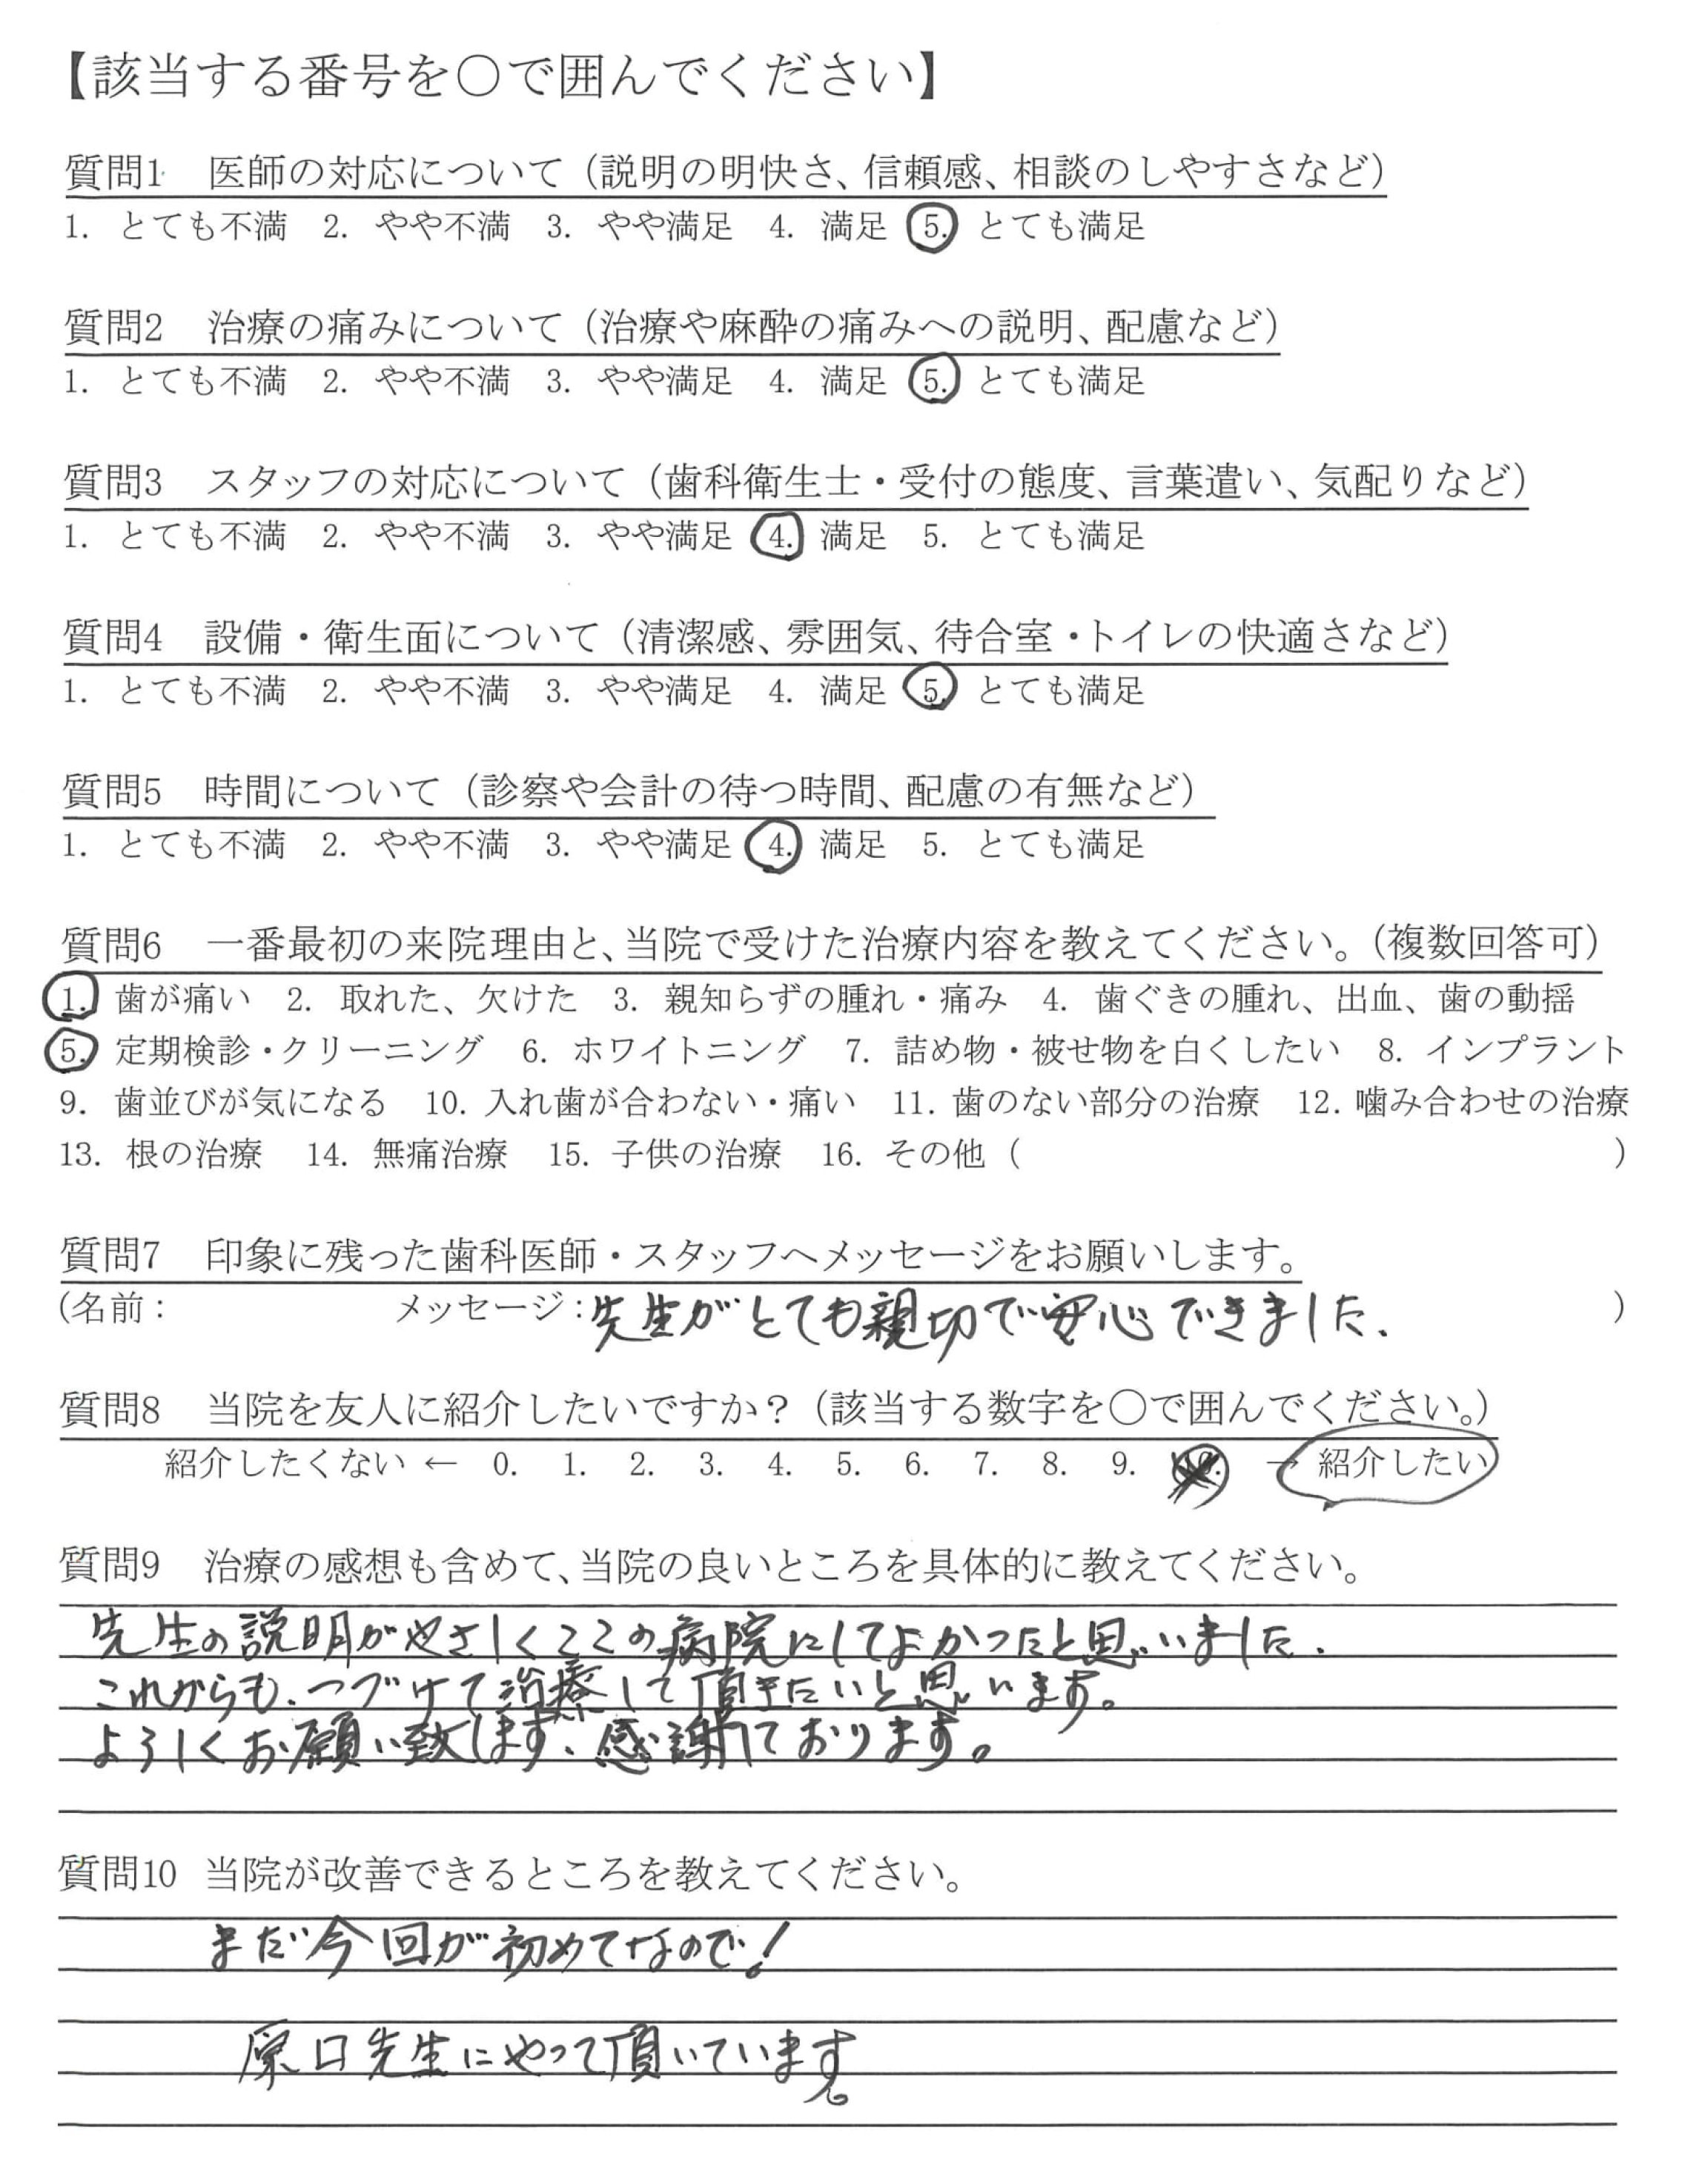 【該当する番号を〇で囲んでください】
質問1　医師の対応について（説明の明快さ、信頼感、相談のしやすさなど）
1. とても不満　2. やや不満　3. やや満足　4. 満足　5. とても満足
質問2　治療の痛みについて（治療や麻酔の痛みへの説明、配慮など）
1. とても不満　2. やや不満　3. やや満足　4. 満足　5. とても満足
質問3　スタッフの対応について（歯科衛生士・受付の態度、言葉遣い、気配りなど）
1. とても不満　2. やや不満　3. やや満足　4. 満足　5. とても満足
質問4　設備・衛生面について（清潔感、雰囲気、待合室・トイレの快適さなど）
1. とても不満　2. やや不満　3. やや満足　4. 満足　5. とても満足
質問5　時間について（診察や会計の待つ時間、配慮の有無など）
1. とても不満　2. やや不満　3. やや満足　4. 満足　5. とても満足
質問6　一番最初の来院理由と、当院で受けた治療内容を教えてください。（複数回答可）
1. 歯が痛い　2. 取れた、欠けた　3. 親知らずの腫れ・痛み　4. 歯ぐきの腫れ、出血、歯の動揺
5. 定期検診・クリーニング　6. ホワイトニング　7. 詰め物・被せ物を白くしたい　8. インプラント
9. 歯並びが気になる　10. 入れ歯が合わない・痛い　11. 歯のない部分の治療　12. 噛み合わせの治療
13. 根の治療　14. 無痛治療　15. 子供の治療　16. その他（　　　）
質問7　印象に残った歯科医師・スタッフへメッセージをお願いします。
（名前：　　　メッセージ：先生がとても親切で安心できました.　　　）
質問8　当院を友人に紹介したいですか？（該当する数字を〇で囲んでください。）
紹介したくない ← 0. 1. 2. 3. 4. 5. 6. 7. 8. 9. 10. → 紹介したい
質問9　治療の感想も含めて、当院の良いところを具体的に教えてください。
先生の説明がやさしくここの病院にしてよかったと思いました.
これからも、つづけて治療して頂きたいと思います。
よろしくお願い致します、感謝しております。
質問10　当院が改善できるところを教えてください。
まだ今回が初めてなので！
原口先生にやって頂いています。